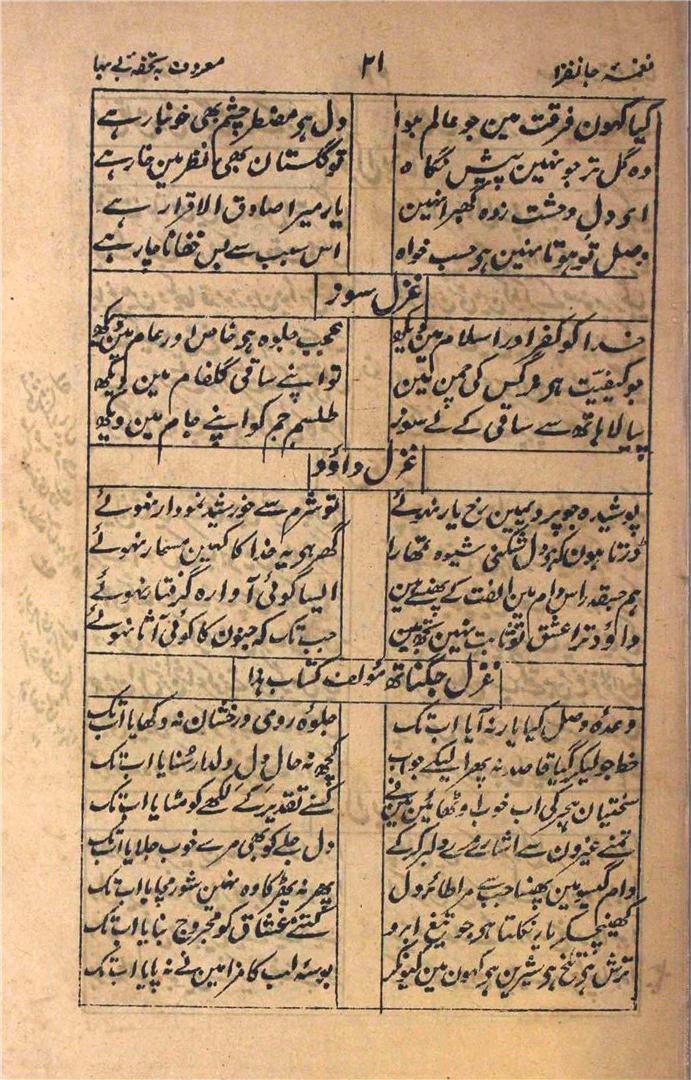 نغمۂ جانفزا ۲۱ معروف بہ تحفۂ بے بہا
کیا کہون فرقت مین جو عالم ہوا دل ہی مضطر چشم بھی خونبار ہے
وہ گل تر جو نہین پیش نگاہ تو گلستان بھی نظر مین خار ہے
ای دل وحشت زدہ گھبرا نہین یار میرا صادق الاقرار ہے
وصل تو ہوتا نہین ہی حسب خواہ اس سبب سے بس ناچار ہے
غزل سوز
خدا کو کفر اور اسلام مین دیکھ عجب جلوہ ہی خاص اور عام مین دیکھ
جو کیفیت ہی نرگس کی چمن مین تو اپنے ساقی گلفام مین دیکھ
پیالا ہاتھ سے ساقی کے لے سوز طلسم جم کو اپنے جام مین دیکھ
غزل داؤد
پوشیدہ جو پردہ مین رخ یار نہوئے تو شرم سے خورشید نمودار نہوئے
ڈرتا ہون کہ دل شکنی شیوہ تمھارا گھر ہی یہ خدا کا کہین مسمار نہوئے
ہم جسقدر اس دام مین الفت کے پھنسے ہین ایسا کوئی آوارہ گرفتار نہوئے
داؤد ترا عشق تو ثابت نہین جب تک کہ جنون کا کوئی آثار نہوئے
غزل جگناتھ مؤلف کتاب ہذا
وعدۂ وصل کیا یار نہ آیا اب تک جلوۂ روی درخشان نہ دکھایا اب تک
خط جو لیکر گیا قاصد نہ پھرا لیکے جواب کچھ نہ حال دل دلدار سُنایا اب تک
سختیان ہجر کی اب خوب اوٹھائین مین نے کسنے تقدیر کے لکھے کو مٹایا اب تک
تمنے غیرون سے اشارے دلبر کرکے دل جلے کو بھی مرے خوب جلایا اب تک
دام گیسو مین پھنسا جب سے مرا طائر دل پھر نہ پھڑکا وہ نہین شور مچایا اب تک
کھینچکر یار نکلتا ہی جو تیغ ابرو کتنے عشاق کو مجروح بنایا اب تک
ترش ہی تلخ ہی شیرین ہی کہون مین کیونکر بوسۂ لب کا مزا مین نے نہ پایا اب تک